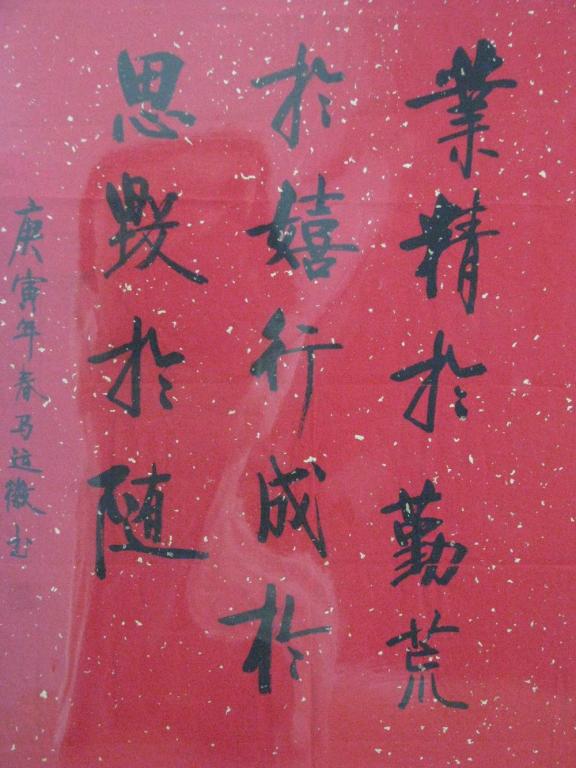 業精於勤荒
於嬉行成於
思毀於随
庚寅年春马运徵书